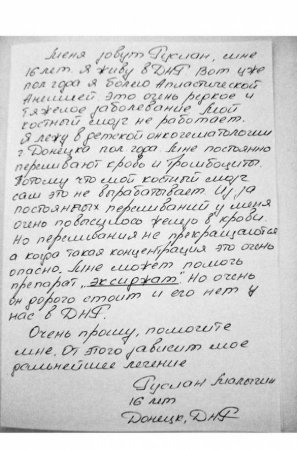 Меня зовут Руслан, мне
16 лет. Я живу в ДНР. Вот уже
пол года я болею Апластической
Анимией Это очень редкое и
тяжелое заболевание Мой
костный мозг не работает.
Я лежу в детской онкогематологии
г. Донецка пол года. Мне постоянно
переливают кровь и тромбоциты.
Потому что мой костный мозг
сам это не вырабатывает. Из за
постоянных переливаний у меня
очень повысилось железо в крови.
Но переливания не прекращаются
а когда такая концентрация это очень
опасно. Мне может помочь
препарат "эксиджат". Но очень
он дорого стоит и его нет у
нас в ДНР.
Очень прошу, помогите
мне. От этого зависит мое
дальнейшее лечение
Руслан Малыгин
16 лет
Донецк, ДНР